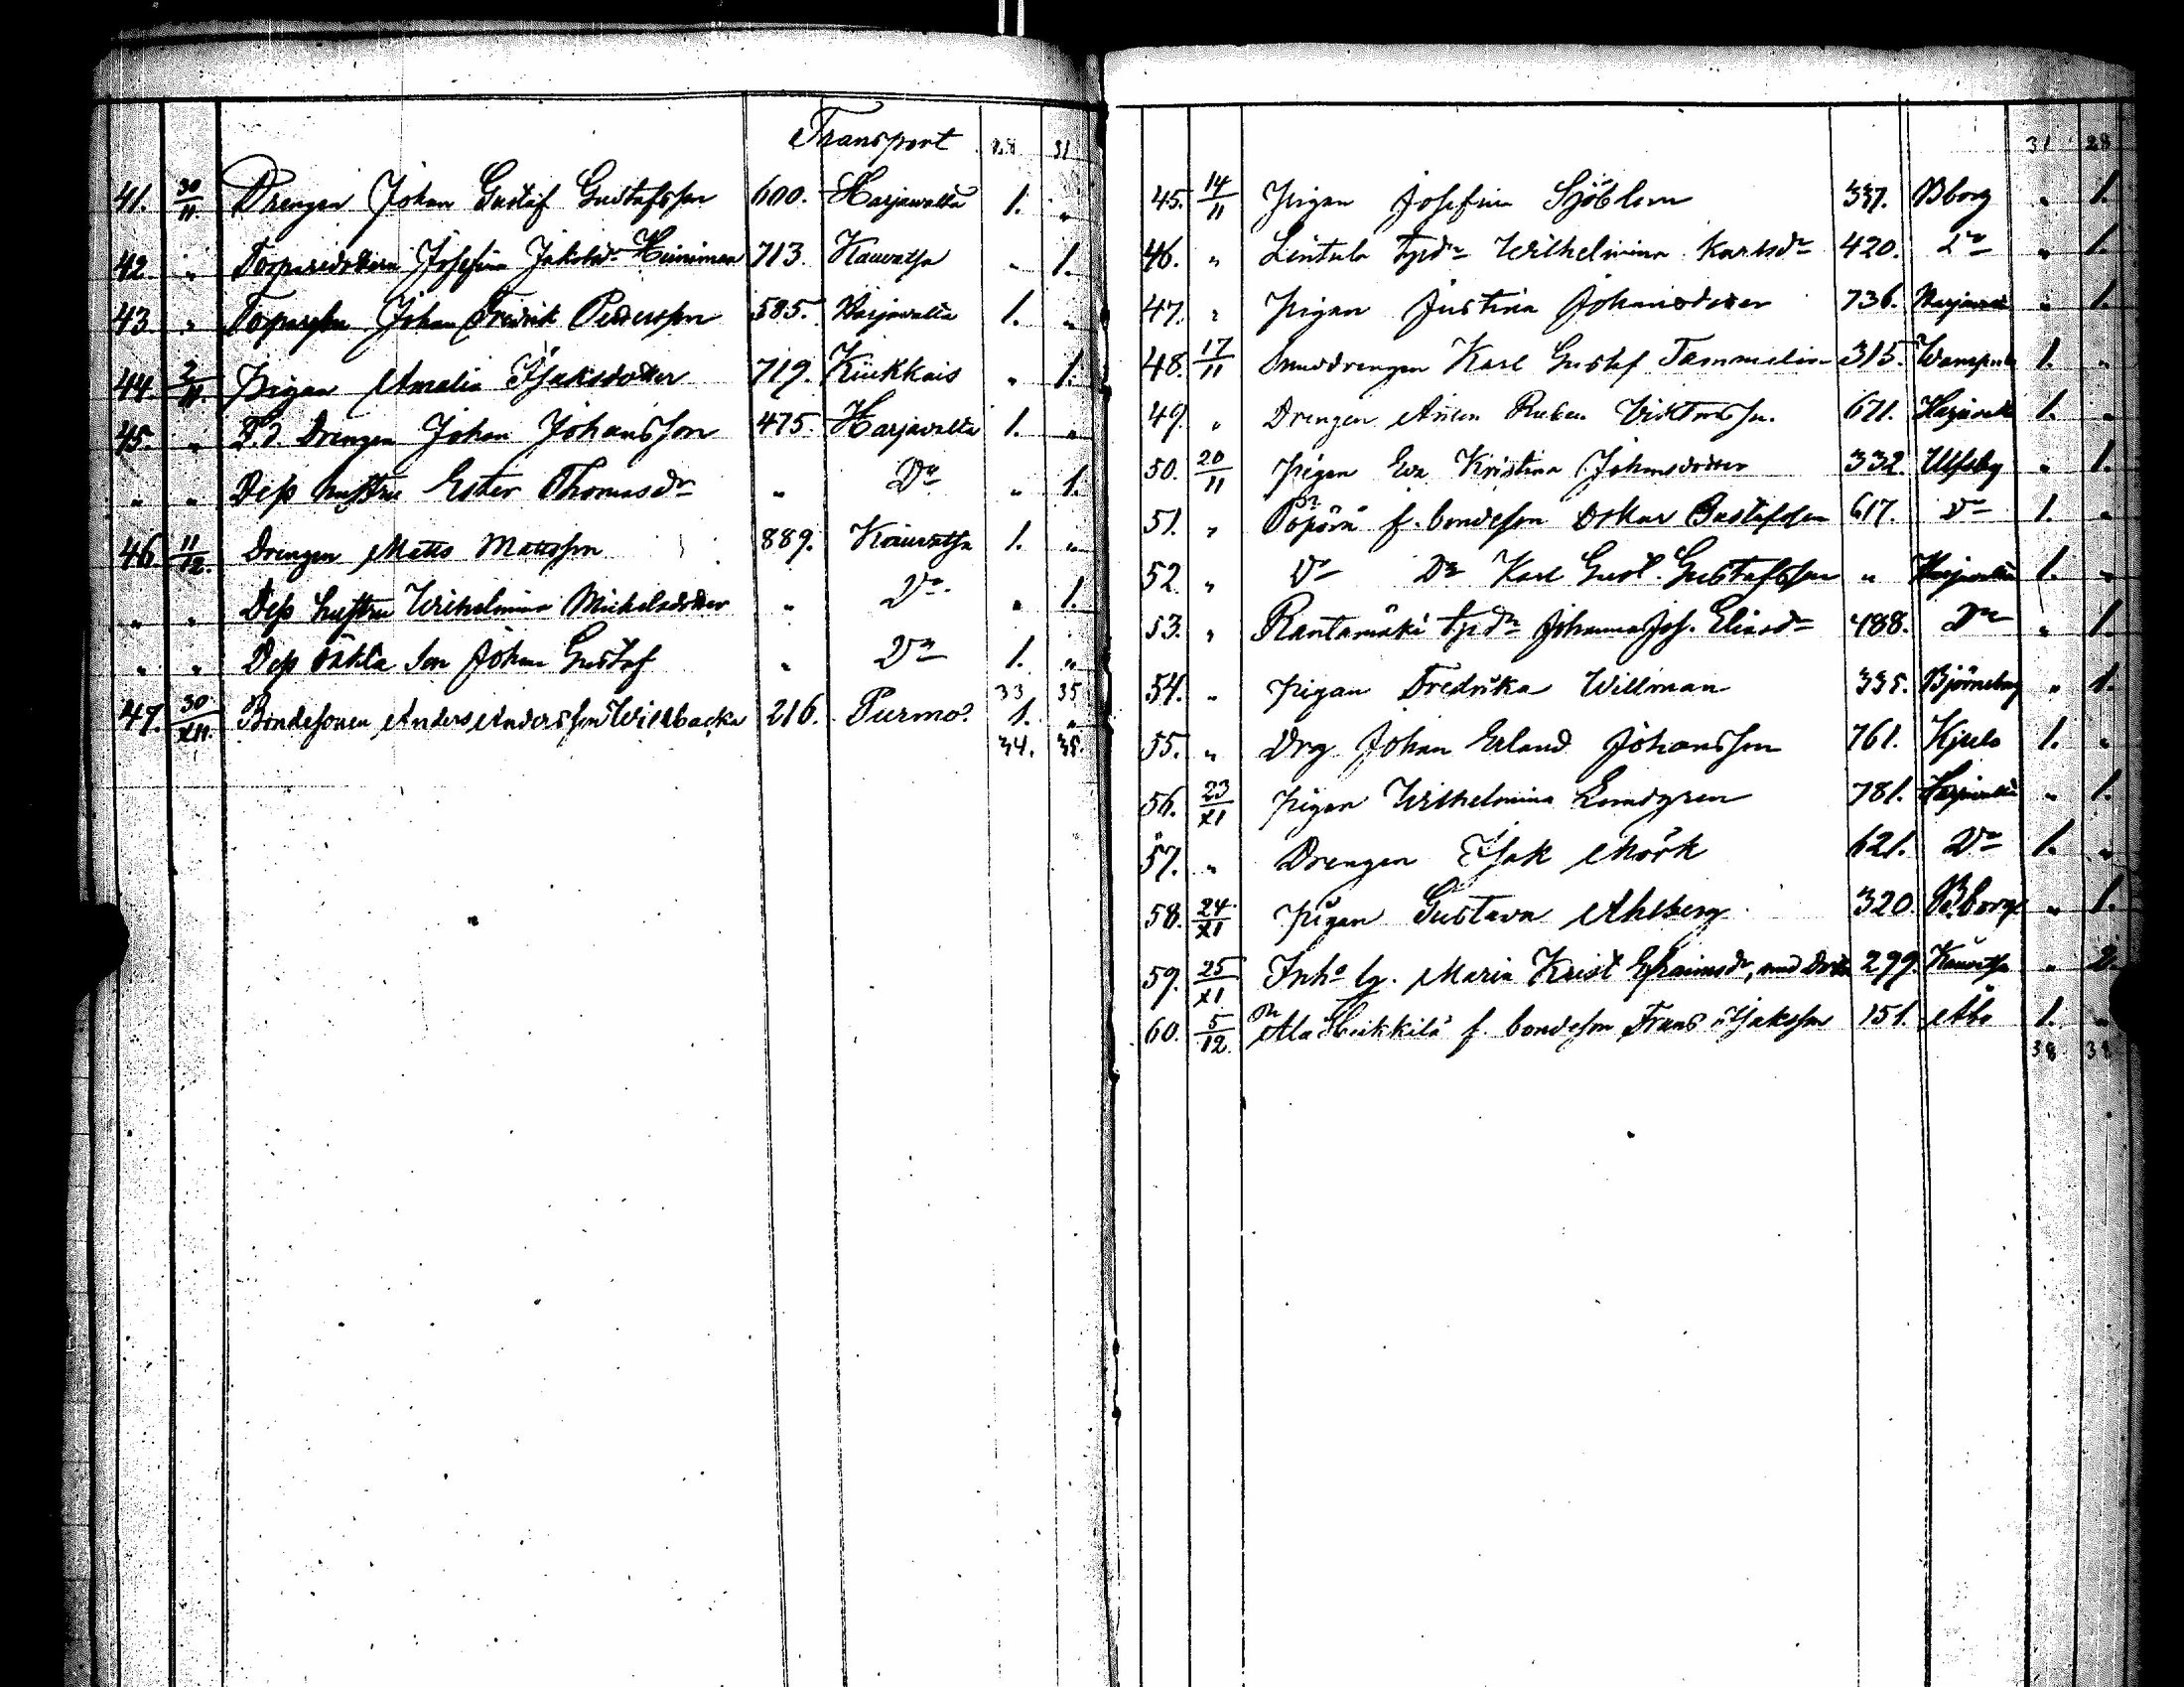 Transport 28 31
41. 30/11 Drengen Johan Gustaf Gustafsson 600. Harjavalta 1. "
42 " Torparedottern Josefina Jakobsdr Heiniman 713. Kauvatsa " 1.
43 " Torpareson Johan Fredrik Pettersson 585. Harjavalta 1. "
44 2/11 Pigan Amalia Isaksdotter 719. Kiukkais " 1.
45. " F.d. Drengen Johan Johansson 475. Harjavalta 1. "
" " Dess hustru Ester Thomasdr " Do " 1.
46. 11/12. Drengen Matts Mattsson 889. Kauvatsa 1. "
" " Dess hustru Wilhelmina Michelsdotter " Do " 1.
" " Dess oäkta son Johan Gustaf " Do 1. "
33 35
47. 30/XII. Bondesonen Anders Andersson Willbacka 216. Purmo. 1. "
34. 35.
31 28
45. 14/11 Pigan Josefina Sjöblom 337. Bborg " 1.
46. " Lintula tpdr Wilhelmina Karlsdr 420. Do " 1.
47. " Pigan Justina Johansdotter 736. Harjavalta " 1.
48. 17/11 Karl Gustaf Tammelin 315. Wampula 1. "
49. " Drengen Anton Ruben Viktorsson. 671. Harjavalta 1. "
50. 20/11 Pigan Eva Kristina Johansdotter 332. Ulfsby " 1.
51. " Pöpörä f. bondeson Oskar Gustafsson 617. Do 1. "
52. " Do Do Karl Gust. Gustafsson " Harjavalta 1. "
53. " Rantamäki tpdr Johanna Jos. Eliasdr 488. Do " 1.
54. " Pigan Fredrika Willman 335. Björneborg " 1.
55. " Drg Johan Erland Johansson 761. Kjulo 1. "
56. 23/XI Pigan Wilhelmina Lundgren 781. Harjavalta " 1.
57. " Drengen Isak Mörk 621. Do 1. "
58. 24/XI Pigan Gustava Ahlberg 320. B.borg " 1.
59. 25/XI Inhs lg. Maria Krist Efraimsdr, med dotter 299. Kauvatsa " 2.
60. 5/12. Ala Heikkilä f. bondeson Frans Isaksson 151. Åbo 1. "
38 38